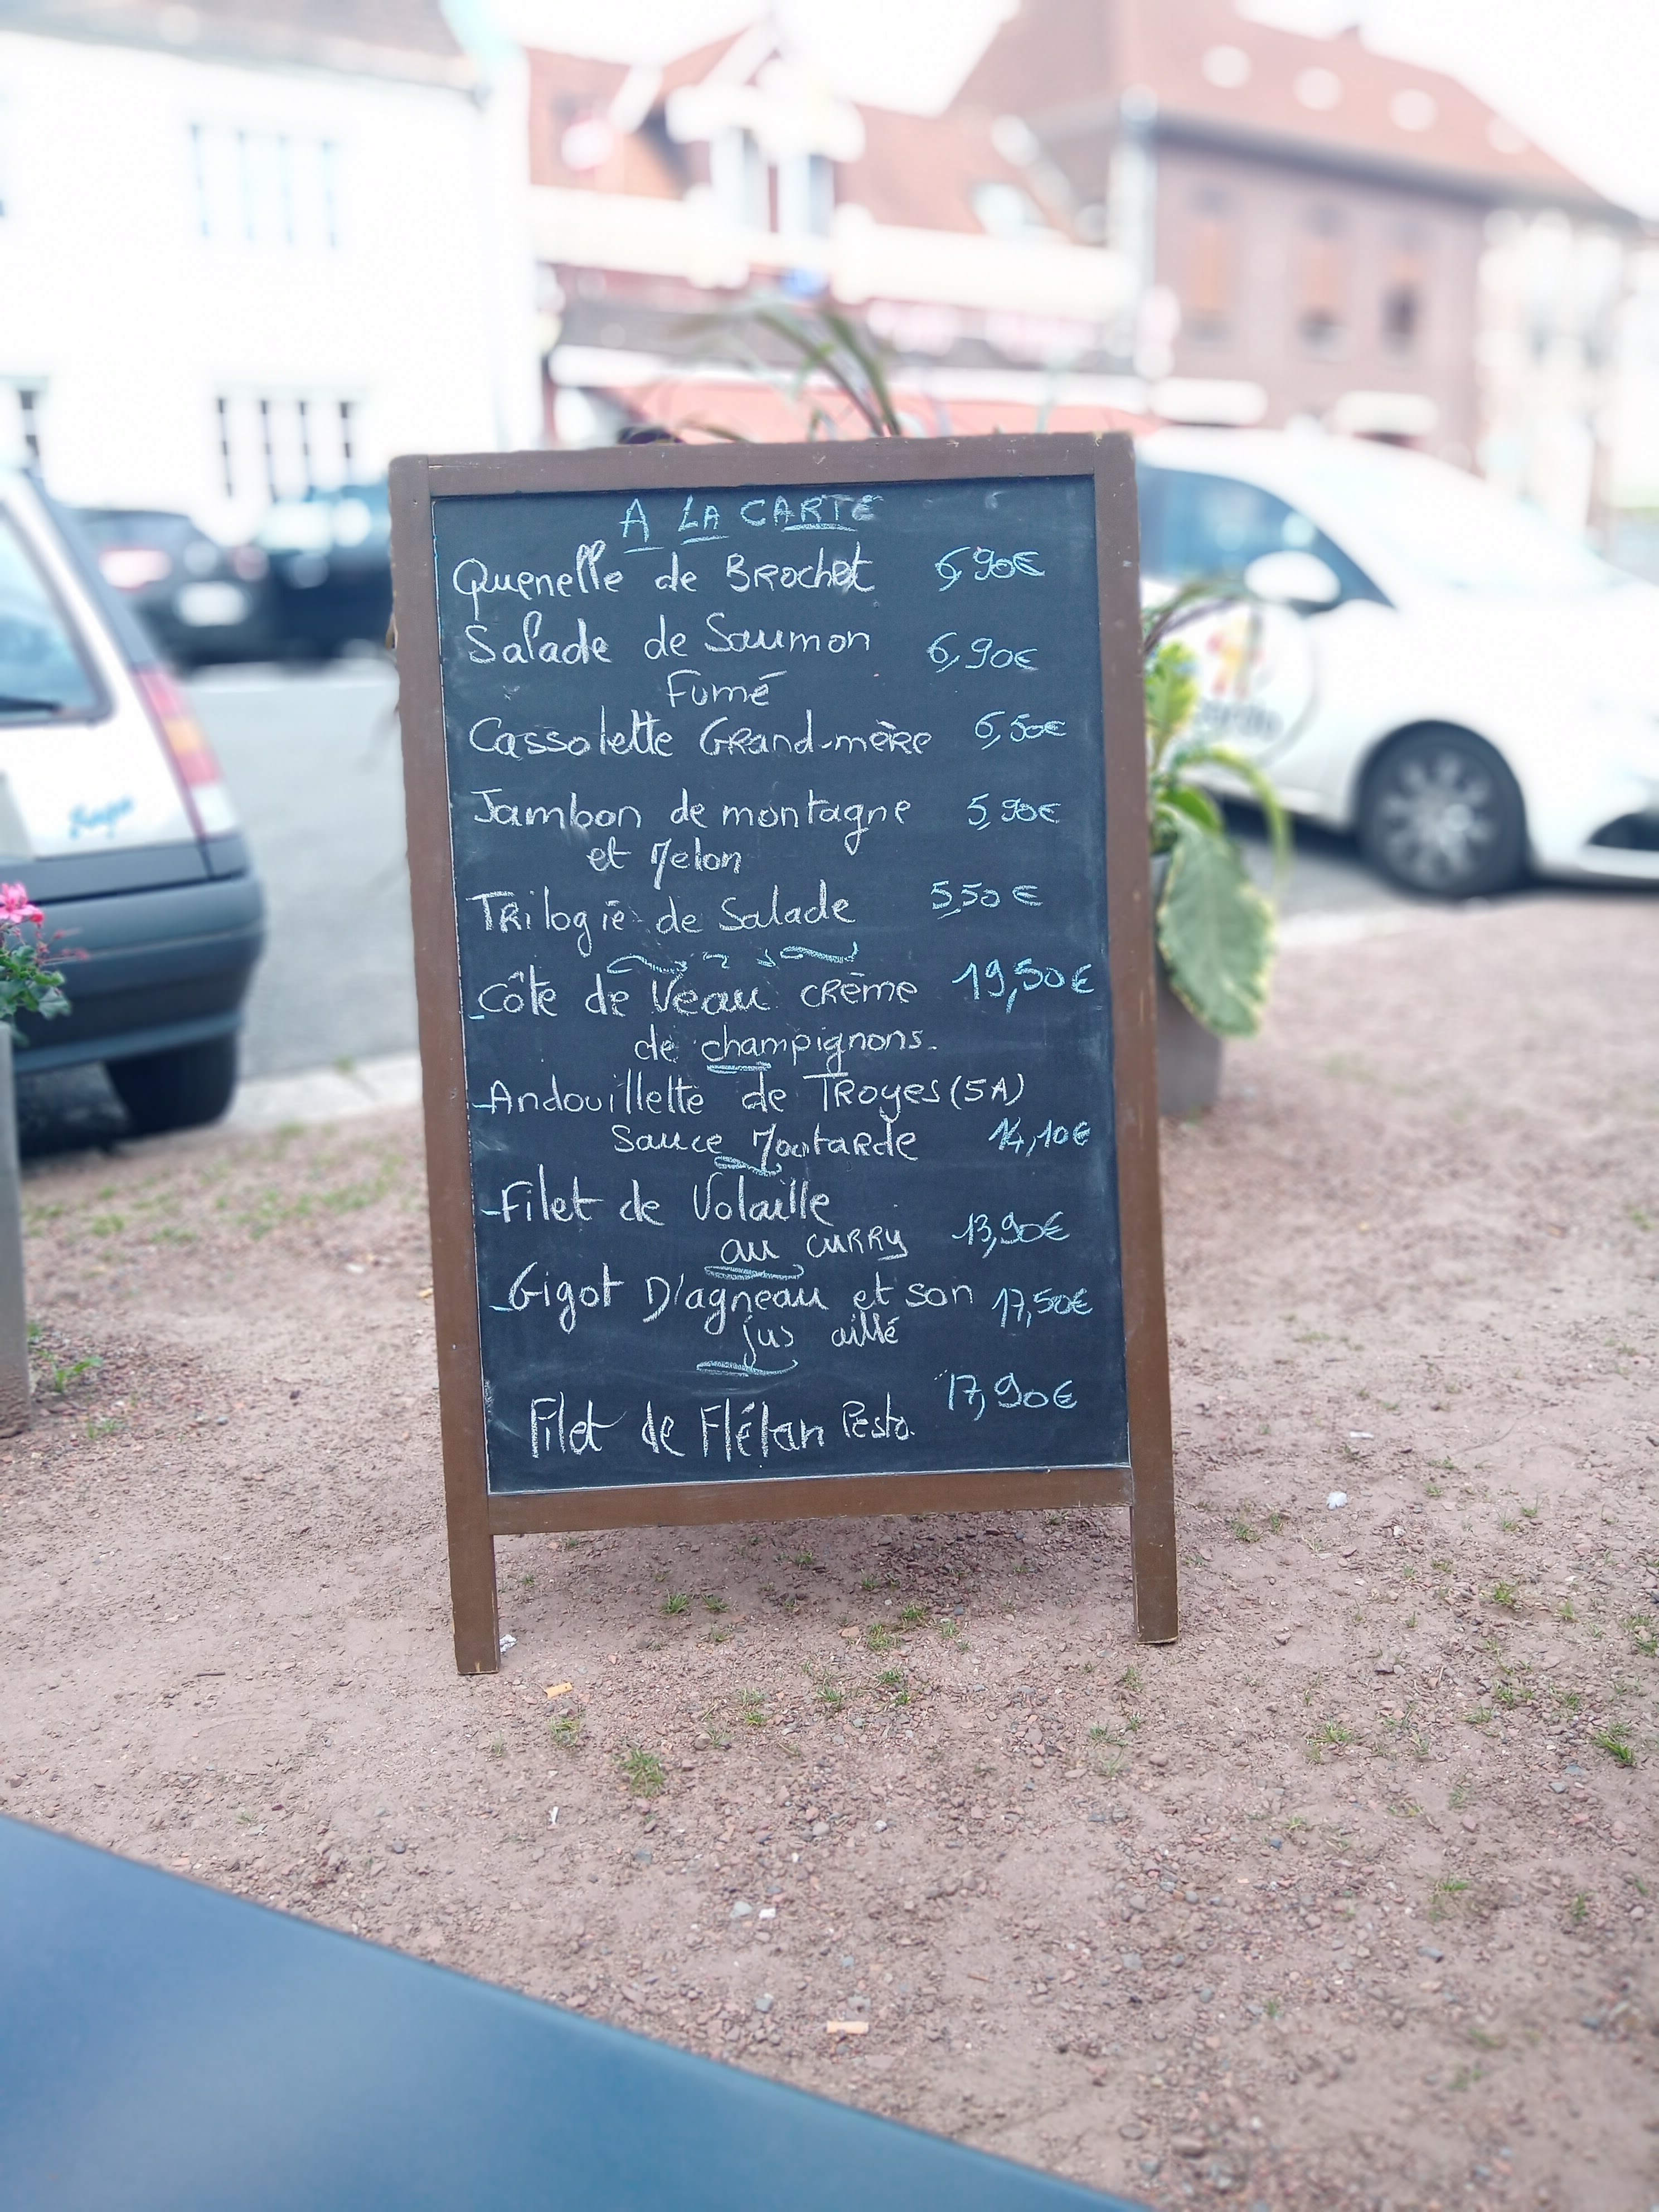 A LA CARTE
Quenelle de Brochet 6,90€
Salade de Saumon 6,90€
Fumé
Cassolette Grand-mère 6,50€
Jambon de montagne 5,90€
et Melon
Trilogie de Salade 5,50€
Côte de Veau crème 19,50€
de champignons.
Andouillette de Troyes (5A)
Sauce Moutarde 14,10€
Filet de Volaille
au curry 13,90€
Gigot D'agneau et son 17,50€
jus aillé
17,90€
Filet de Flétan Pesto.